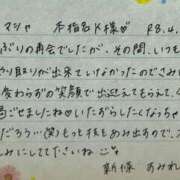 マシャ 本指名K様♡ R8.4.
ぶりの再会でしたが、その間、いつも
やり取りが出来ていなたのでさみし
変わらずの笑顔で出迎えてもらえて
過ごせましたね♡いたずらしたくなっちゃ
だろう…(笑)もっと技をみ出すので、
しみにしててくださいね
新條 あみれ